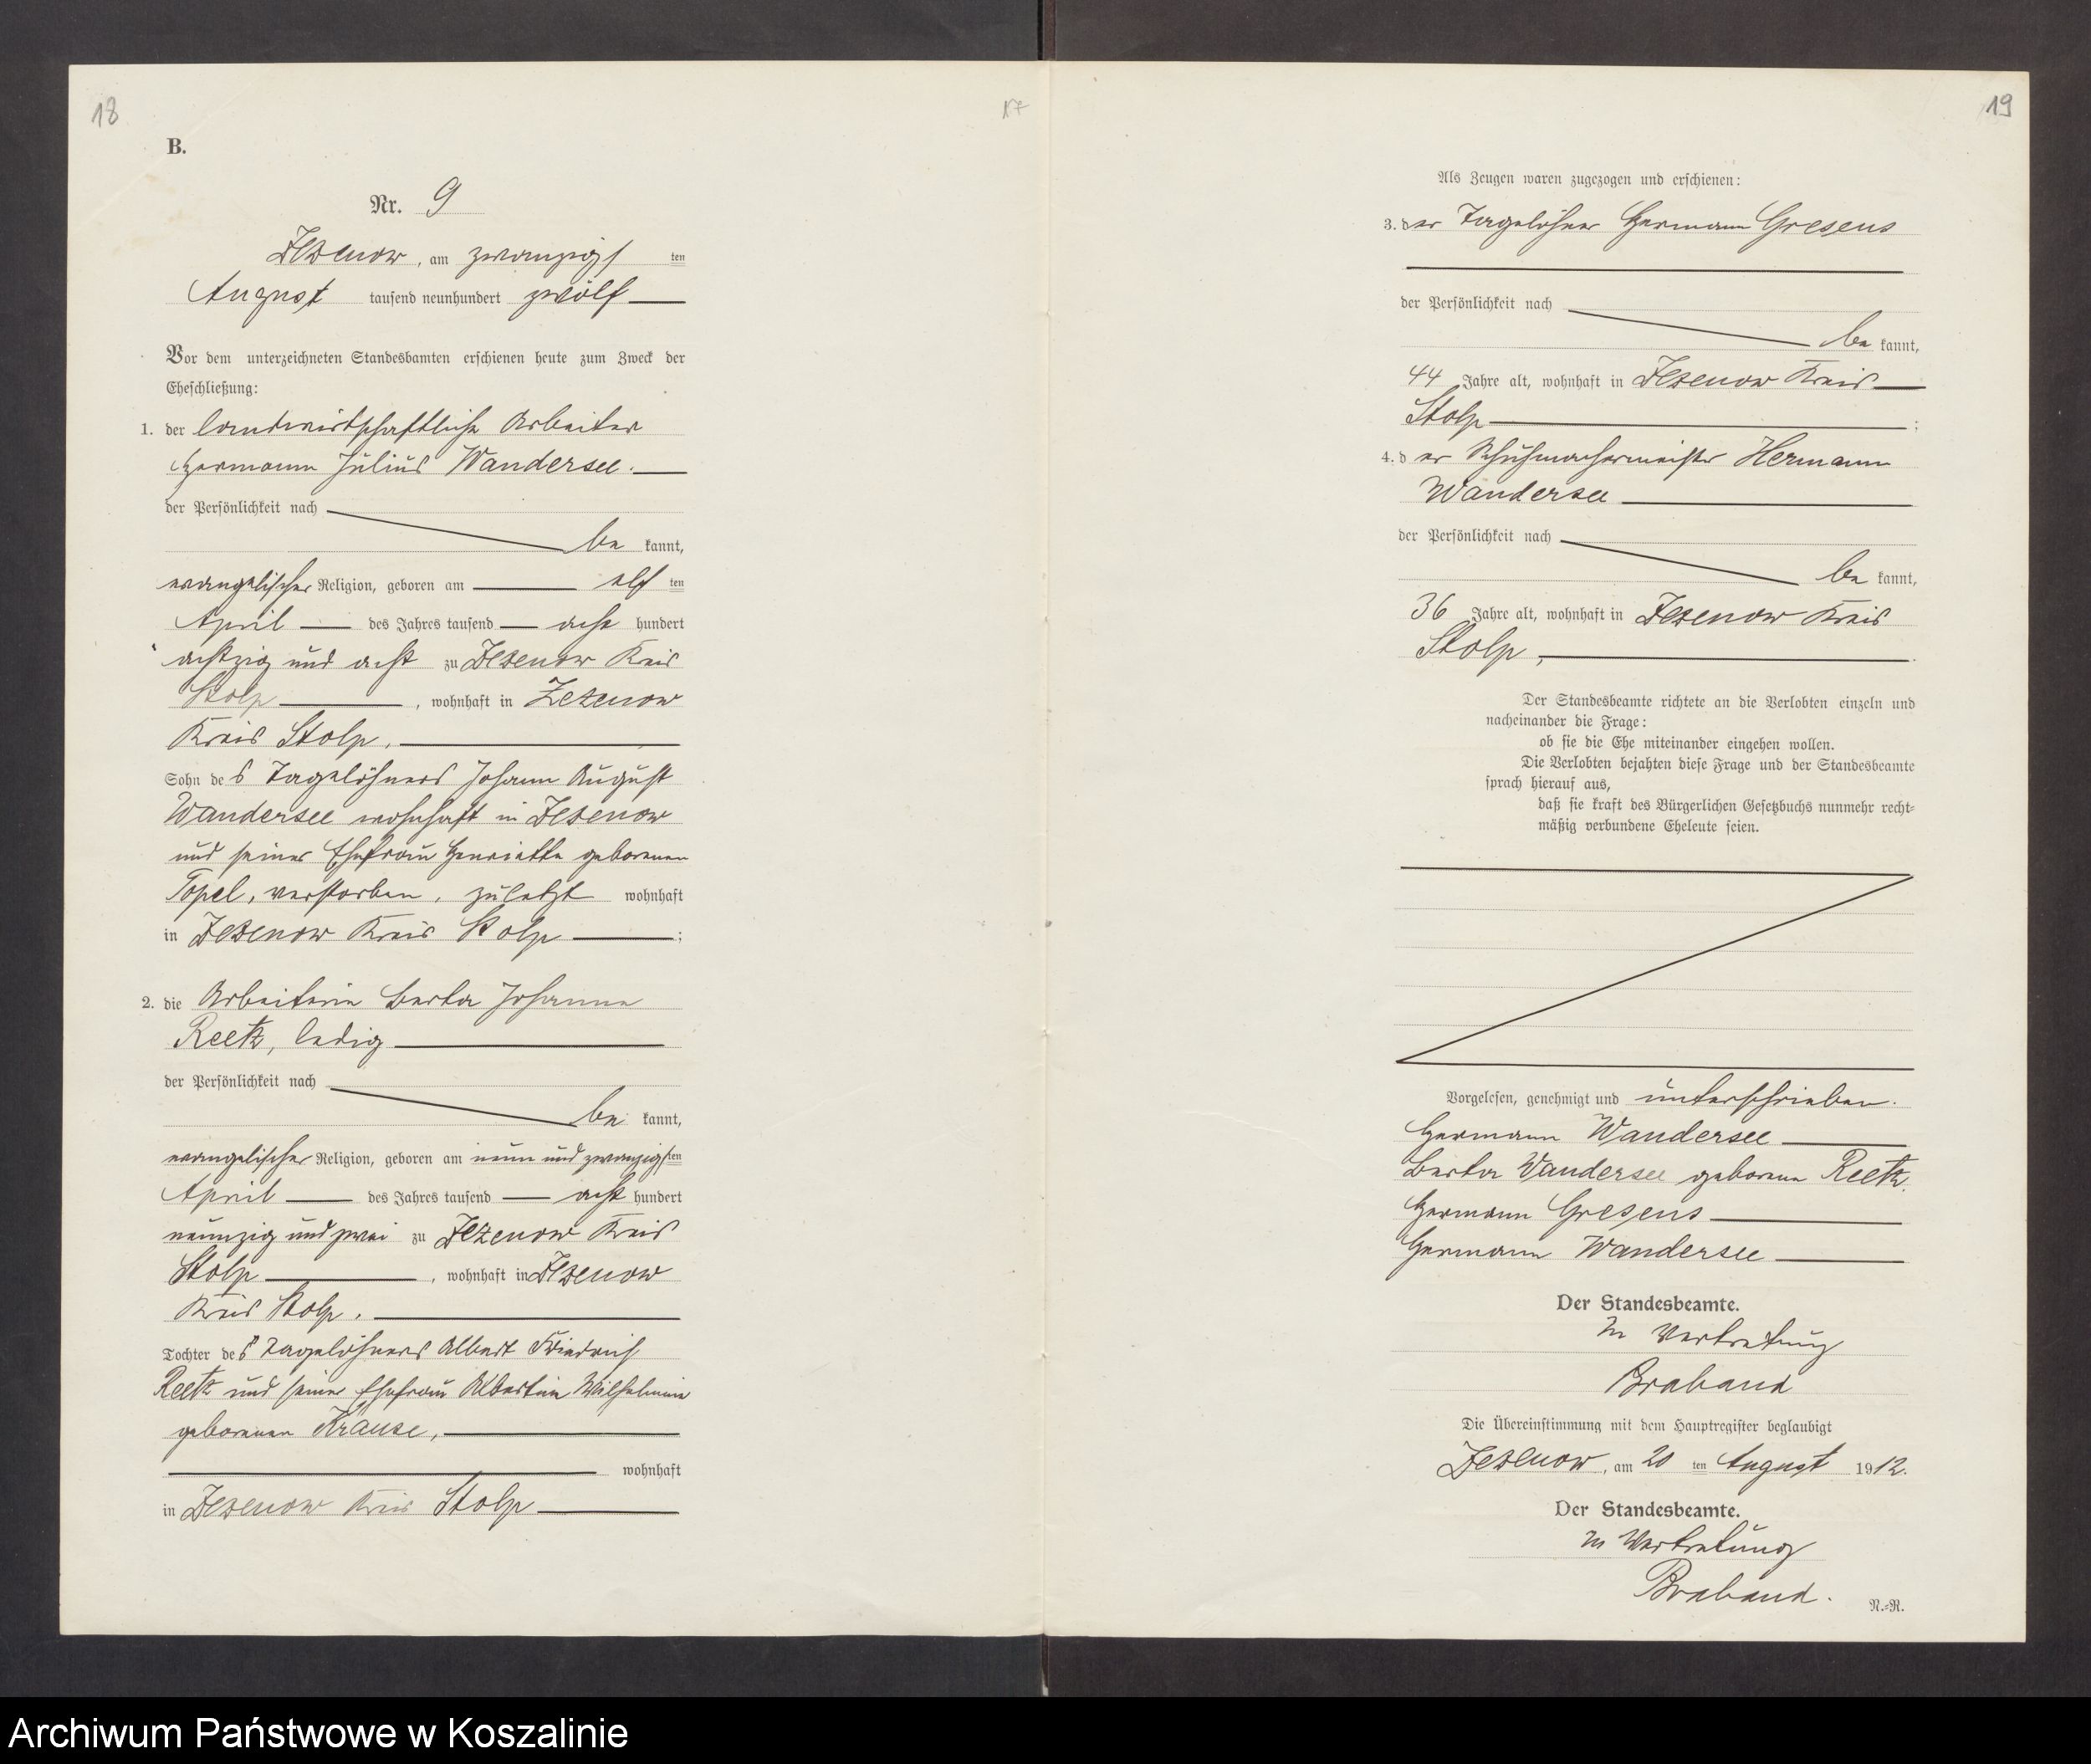 18
17
B.
Nr. 9
Zezenow, am zwanzigsten
August tausend neunhundert zwölf
Vor dem unterzeichneten Standesbamten erschienen heute zum Zweck der
Eheschließung:
1. der landwirtschaftliche Arbeiter
Hermann Julius Wandersee.
der Persönlichkeit nach
be kannt,
evangelischer Religion, geboren am elf ten
April des Jahres tausend acht hundert
achtzig und acht zu Zezenow Kreis
Stolp, wohnhaft in Zezenow
Kreis Stolp,
Sohn des Tagelöhners Johann August
Wandersee wohnhaft in Zezenow
und seiner Ehefrau Henriette geborenen
Topel, verstorben, zuletzt wohnhaft
in Zezenow Kreis Stolp ;
2. die Arbeiterin Berta Johanna
Reetz, ledig
der Persönlichkeit nach
be kannt,
evangelischer Religion, geboren am neun und zwanzigsten
April des Jahres tausend acht hundert
neunzig und zwei zu Zezenow Kreis
Stolp, wohnhaft in Zezenow
Kreis Stolp,
Tochter des Tagelöhners Albert Friedrich
Reetz und seiner Ehefrau Albertine Wilhelmine
geborenen Krause,
wohnhaft
in Zezenow Kreis Stolp
19
Als Zeugen waren zugezogen und erschienen:
3. der Tagelöhner Hermann Gresens
der Persönlichkeit nach
be kannt,
44 Jahre alt, wohnhaft in Zezenow Kreis
Stolp ;
4. der Schuhmachermeister Hermann
Wandersee
der Persönlichkeit nach
be kannt,
36 Jahre alt, wohnhaft in Zezenow Kreis
Stolp,
Der Standesbeamte richtete an die Verlobten einzeln und
nacheinander die Frage:
ob sie die Ehe miteinander eingehen wollen.
Die Verlobten bejahten diese Frage und der Standesbeamte
sprach hierauf aus,
daß sie kraft des Bürgerlichen Gesetzbuchs nunmehr recht-
mäßig verbundene Eheleute seien.
Vorgelesen, genehmigt und unterschrieben.
Hermann Wandersee
Berta Wandersee geborene Reetz.
Hermann Gresens
Hermann Wandersee
Der Standesbeamte.
In Vertretung
Braband
Die Übereinstimmung mit dem Hauptregister beglaubigt
Zezenow, am 20 ten August 1912.
Der Standesbeamte.
In Vertretung
Braband.
N.-R.
Archiwum Państwowe w Koszalinie